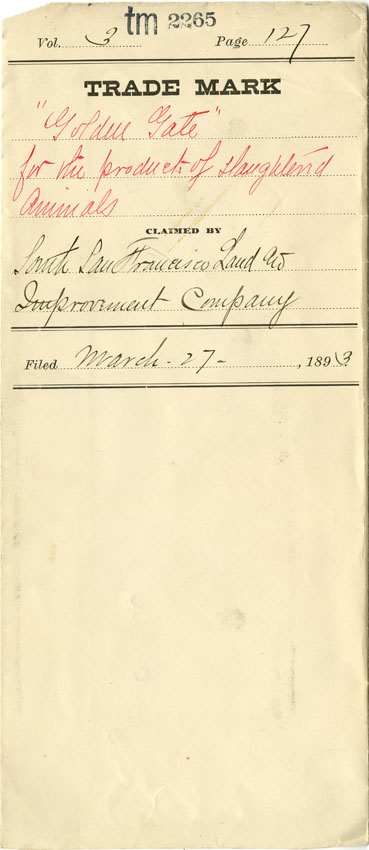 tm 2265
Vol. 3 Page 127
TRADE MARK
"Golden Gate"
for the products of slaughtered
Animals
CLAIMED BY
South San Francisco Land and
Improvement Company
Filed March - 27 - , 1893